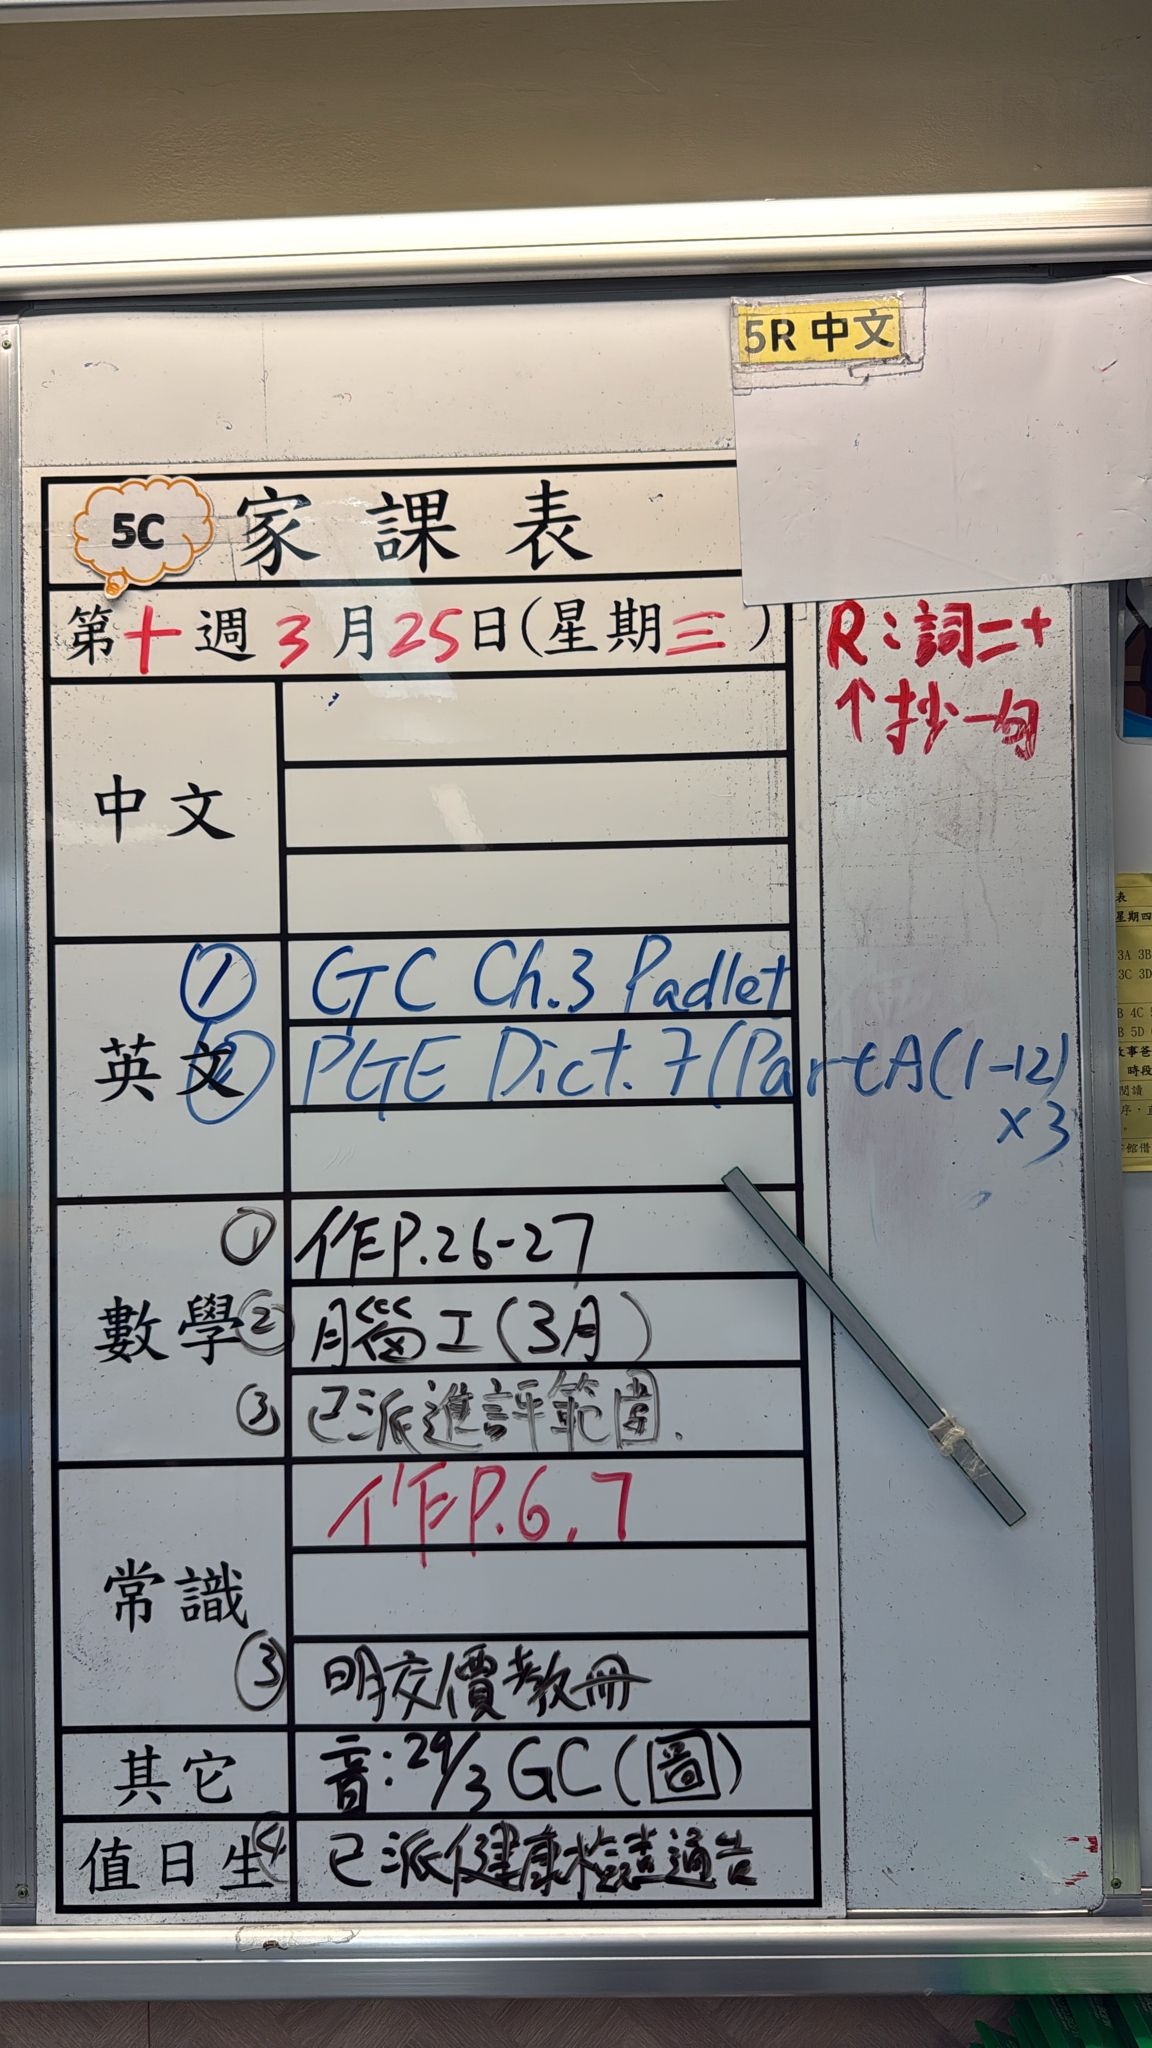 5R 中文
5C 家課表
第十週 3月25日(星期三)
R:詞二十
↑抄一句
中文
英文
① GC Ch.3 Padlet
② PGE Dict.7(Part A(1-12)
×3
數學
① 作P.26-27
② 腦工(3月)
③ 已派進評範圍.
常識
作P.6,7
③ 明交價教冊
其它
音:29/3 GC(圖)
值日生
④ 已派健康檢查通告
表
星期四
3A 3B
3C 3D
B 4C
B 5D
故事爸
時段
閱讀